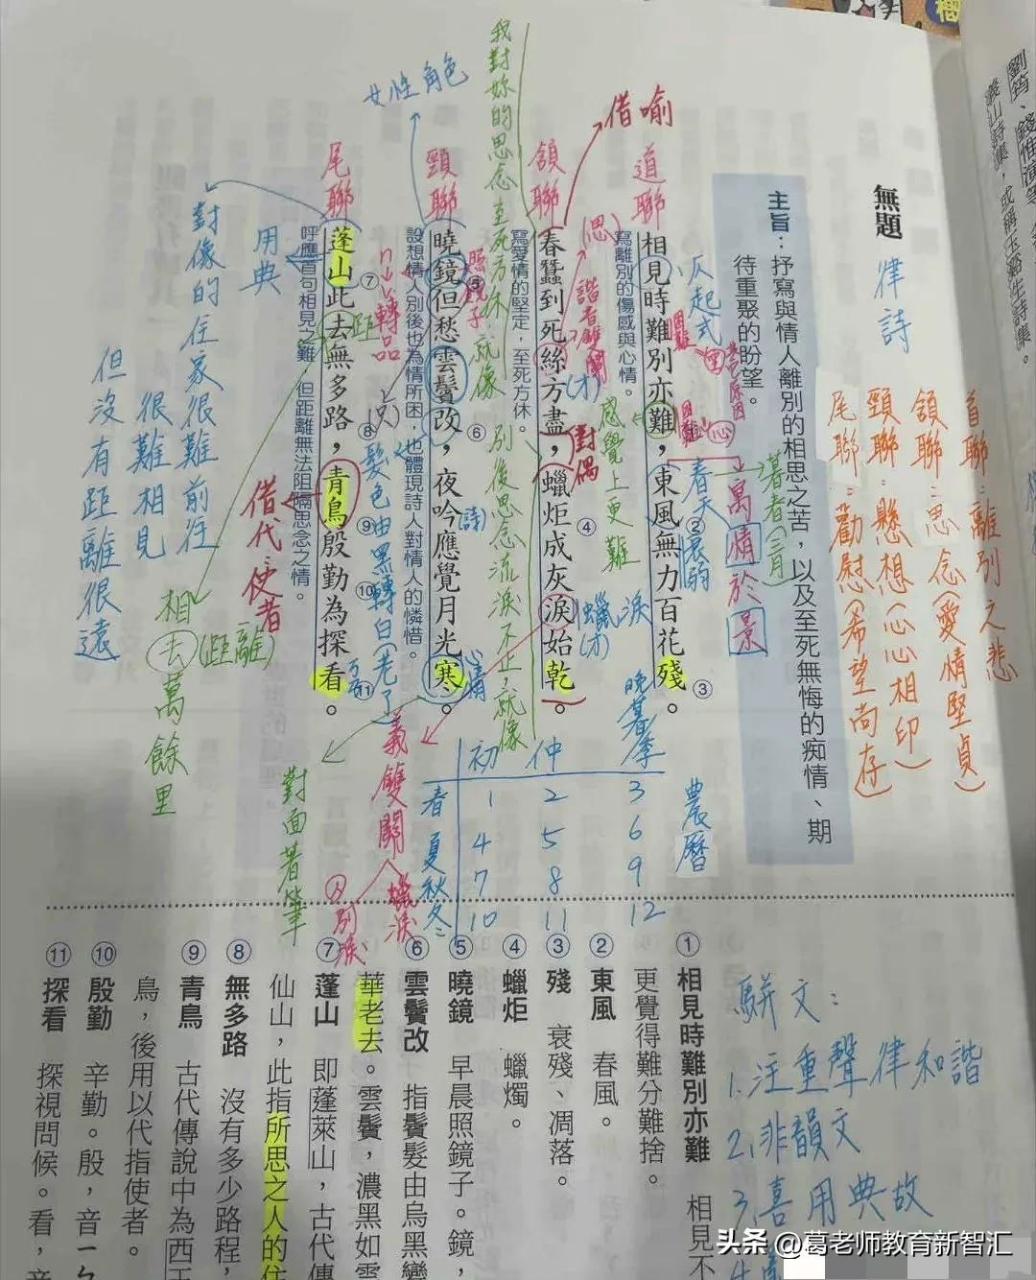 無題
律詩
主旨：抒寫與情人離別的相思之苦，以及至死無悔的痴情、期
待重聚的盼望。
首聯：離別之悲
頷聯：思念（愛情堅貞）
頸聯：懸想（心心相印）
尾聯：勸慰（希望尚存）
仄起式
借喻
相見時難別亦難，東風無力百花殘。
寫離別的傷感與心情。
困難
困難
春天
②衰弱
③
暮春（三月）
寓情於景
感覺上更難
頷聯
春蠶到死絲方盡，蠟炬成灰淚始乾。
寫愛情的堅定，至死方休。
（思）
諧音雙關
（才）
對偶
④
（才）
蠟淚
我對妳的思念至死方休，就像
別後思念流淚不止，就像
女性角色
頸聯
曉鏡但愁雲鬢改，夜吟應覺月光寒。
設想情人別後也為情所困，也體現詩人對情人的憐惜。
⑤
照鏡子
⑥
（只）
（詩）
n→v轉品
髮色由黑轉白（老了）
尾聯
蓬山此去無多路，青鳥殷勤為探看。
呼應首句相見之難，但距離無法阻隔思念之情。
⑦
⑧
⑨
⑩
⑪
距
用典
對像的住家很難前往
很難相見
但沒有距離很遠
借代：使者
相去（距離）萬餘里
對面著筆
義雙關
蠟淚
別淚
農曆
初 仲 晚暮季
春 1 2 3
夏 4 5 6
秋 7 8 9
冬 10 11 12
① 相見時難別亦難 相見不
更覺得難分難捨。
② 東風 春風。
③ 殘 衰殘、凋落。
④ 蠟炬 蠟燭。
⑤ 曉鏡 早晨照鏡子。鏡，
⑥ 雲鬢改 指鬢髮由烏黑變
華老去。雲鬢，濃黑如雲
⑦ 蓬山 即蓬萊山，古代傳
仙山，此指所思之人的住
⑧ 無多路 沒有多少路程，
⑨ 青鳥 古代傳說中為西王
鳥，後用以代指使者。
⑩ 殷勤 辛勤。殷，音ㄧㄣ
⑪ 探看 探視問候。看，音
駢文：
1.注重聲律和諧
2.非韻文
3.喜用典故
头条 @葛老师教育新智汇